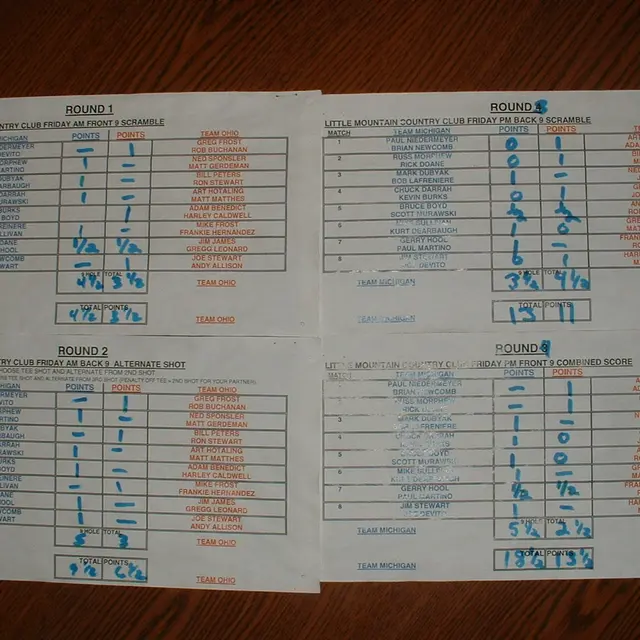 ROUND 1
NTRY CLUB FRIDAY AM FRONT 9 SCRAMBLE
MICHIGAN POINTS POINTS TEAM OHIO
DERMEYER — 1 GREG FROST
DEVITO ROB BUCHANAN
ORPHEW 1 — NED SPONSLER
ARTINO MATT GERDEMAN
UBYAK 1 — BILL PETERS
ARBAUGH RON STEWART
DARRAH 1 — ART HOTALING
MURAWSKI MATT MATTHES
BURKS 1 ADAM BENEDICT
BOYD HARLEY CALDWELL
RENIERE 1 — MIKE FROST
LLIVAN FRANKIE HERNANDEZ
OANE 1/2 1/2 JIM JAMES
HOOL GREGG LEONARD
WCOMB — 1 JOE STEWART
WART ANDY ALLISON
9 HOLE TOTAL
4 1/2 3 1/2 TEAM OHIO
TOTAL POINTS
4 1/2 3 1/2 TEAM OHIO
ROUND 2
TRY CLUB FRIDAY AM BACK 9 ALTERNATE SHOT
MICHIGAN POINTS POINTS TEAM OHIO
ERMEYER — 1 GREG FROST
VITO ROB BUCHANAN
PHEW 1 — NED SPONSLER
TINO MATT GERDEMAN
BYAK — 1 BILL PETERS
BAUGH RON STEWART
RRAH 1 — ART HOTALING
RAWSKI MATT MATTHES
RKS 1 — ADAM BENEDICT
OYD HARLEY CALDWELL
NIERE — 1 MIKE FROST
VAN FRANKIE HERNANDEZ
ANE 1 — JIM JAMES
OOL GREGG LEONARD
COMB 1 — JOE STEWART
ART ANDY ALLISON
9 HOLE TOTAL
5 3 TEAM OHIO
TOTAL POINTS
9 1/2 6 1/2 TEAM OHIO
ROUND
LITTLE MOUNTAIN COUNTRY CLUB FRIDAY PM BACK 9 SCRAMBLE
MATCH TEAM MICHIGAN POINTS POINTS
1 PAUL NIEDERMEYER 0 1
BRIAN NEWCOMB
2 RUSS MORPHEW 0 1
RICK DOANE
3 MARK DUBYAK 1 —
BOB LAFRENIERE
4 CHUCK DARRAH 0 1
KEVIN BURKS
5 BRUCE BOYD 1/2 1/2
SCOTT MURAWSKI
6 1 0
KURT DEARBAUGH
7 GERRY HOOL 1 —
PAUL MARTINO
8 JIM STEWART 1
DEVITO
9 HOLE TOTAL
TEAM MICHIGAN 3 1/2 4 1/2
TOTAL POINTS
TEAM MICHIGAN 13 11
ROUND
LITTLE MOUNTAIN COUNTRY CLUB FRIDAY PM FRONT 9 COMBINED SCORE
MATCH TEAM MICHIGAN POINTS POINTS
1 PAUL NIEDERMEYER — 1
BRIAN NEWCOMB
2 MORPHEW — 1
3 MARK DUBYAK 1 —
LAFRENIERE
4 1 0
5 BOYD 1 0
SCOTT MURAWSKI
6 MIKE 1 —
7 GERRY HOOL 1/2 1/2
PAUL MARTINO
8 JIM STEWART 1 —
DEVITO
9 HOLE TOTAL
TEAM MICHIGAN 5 1/2 2 1/2
TOTAL POINTS
TEAM MICHIGAN 18 1/2 13 1/2